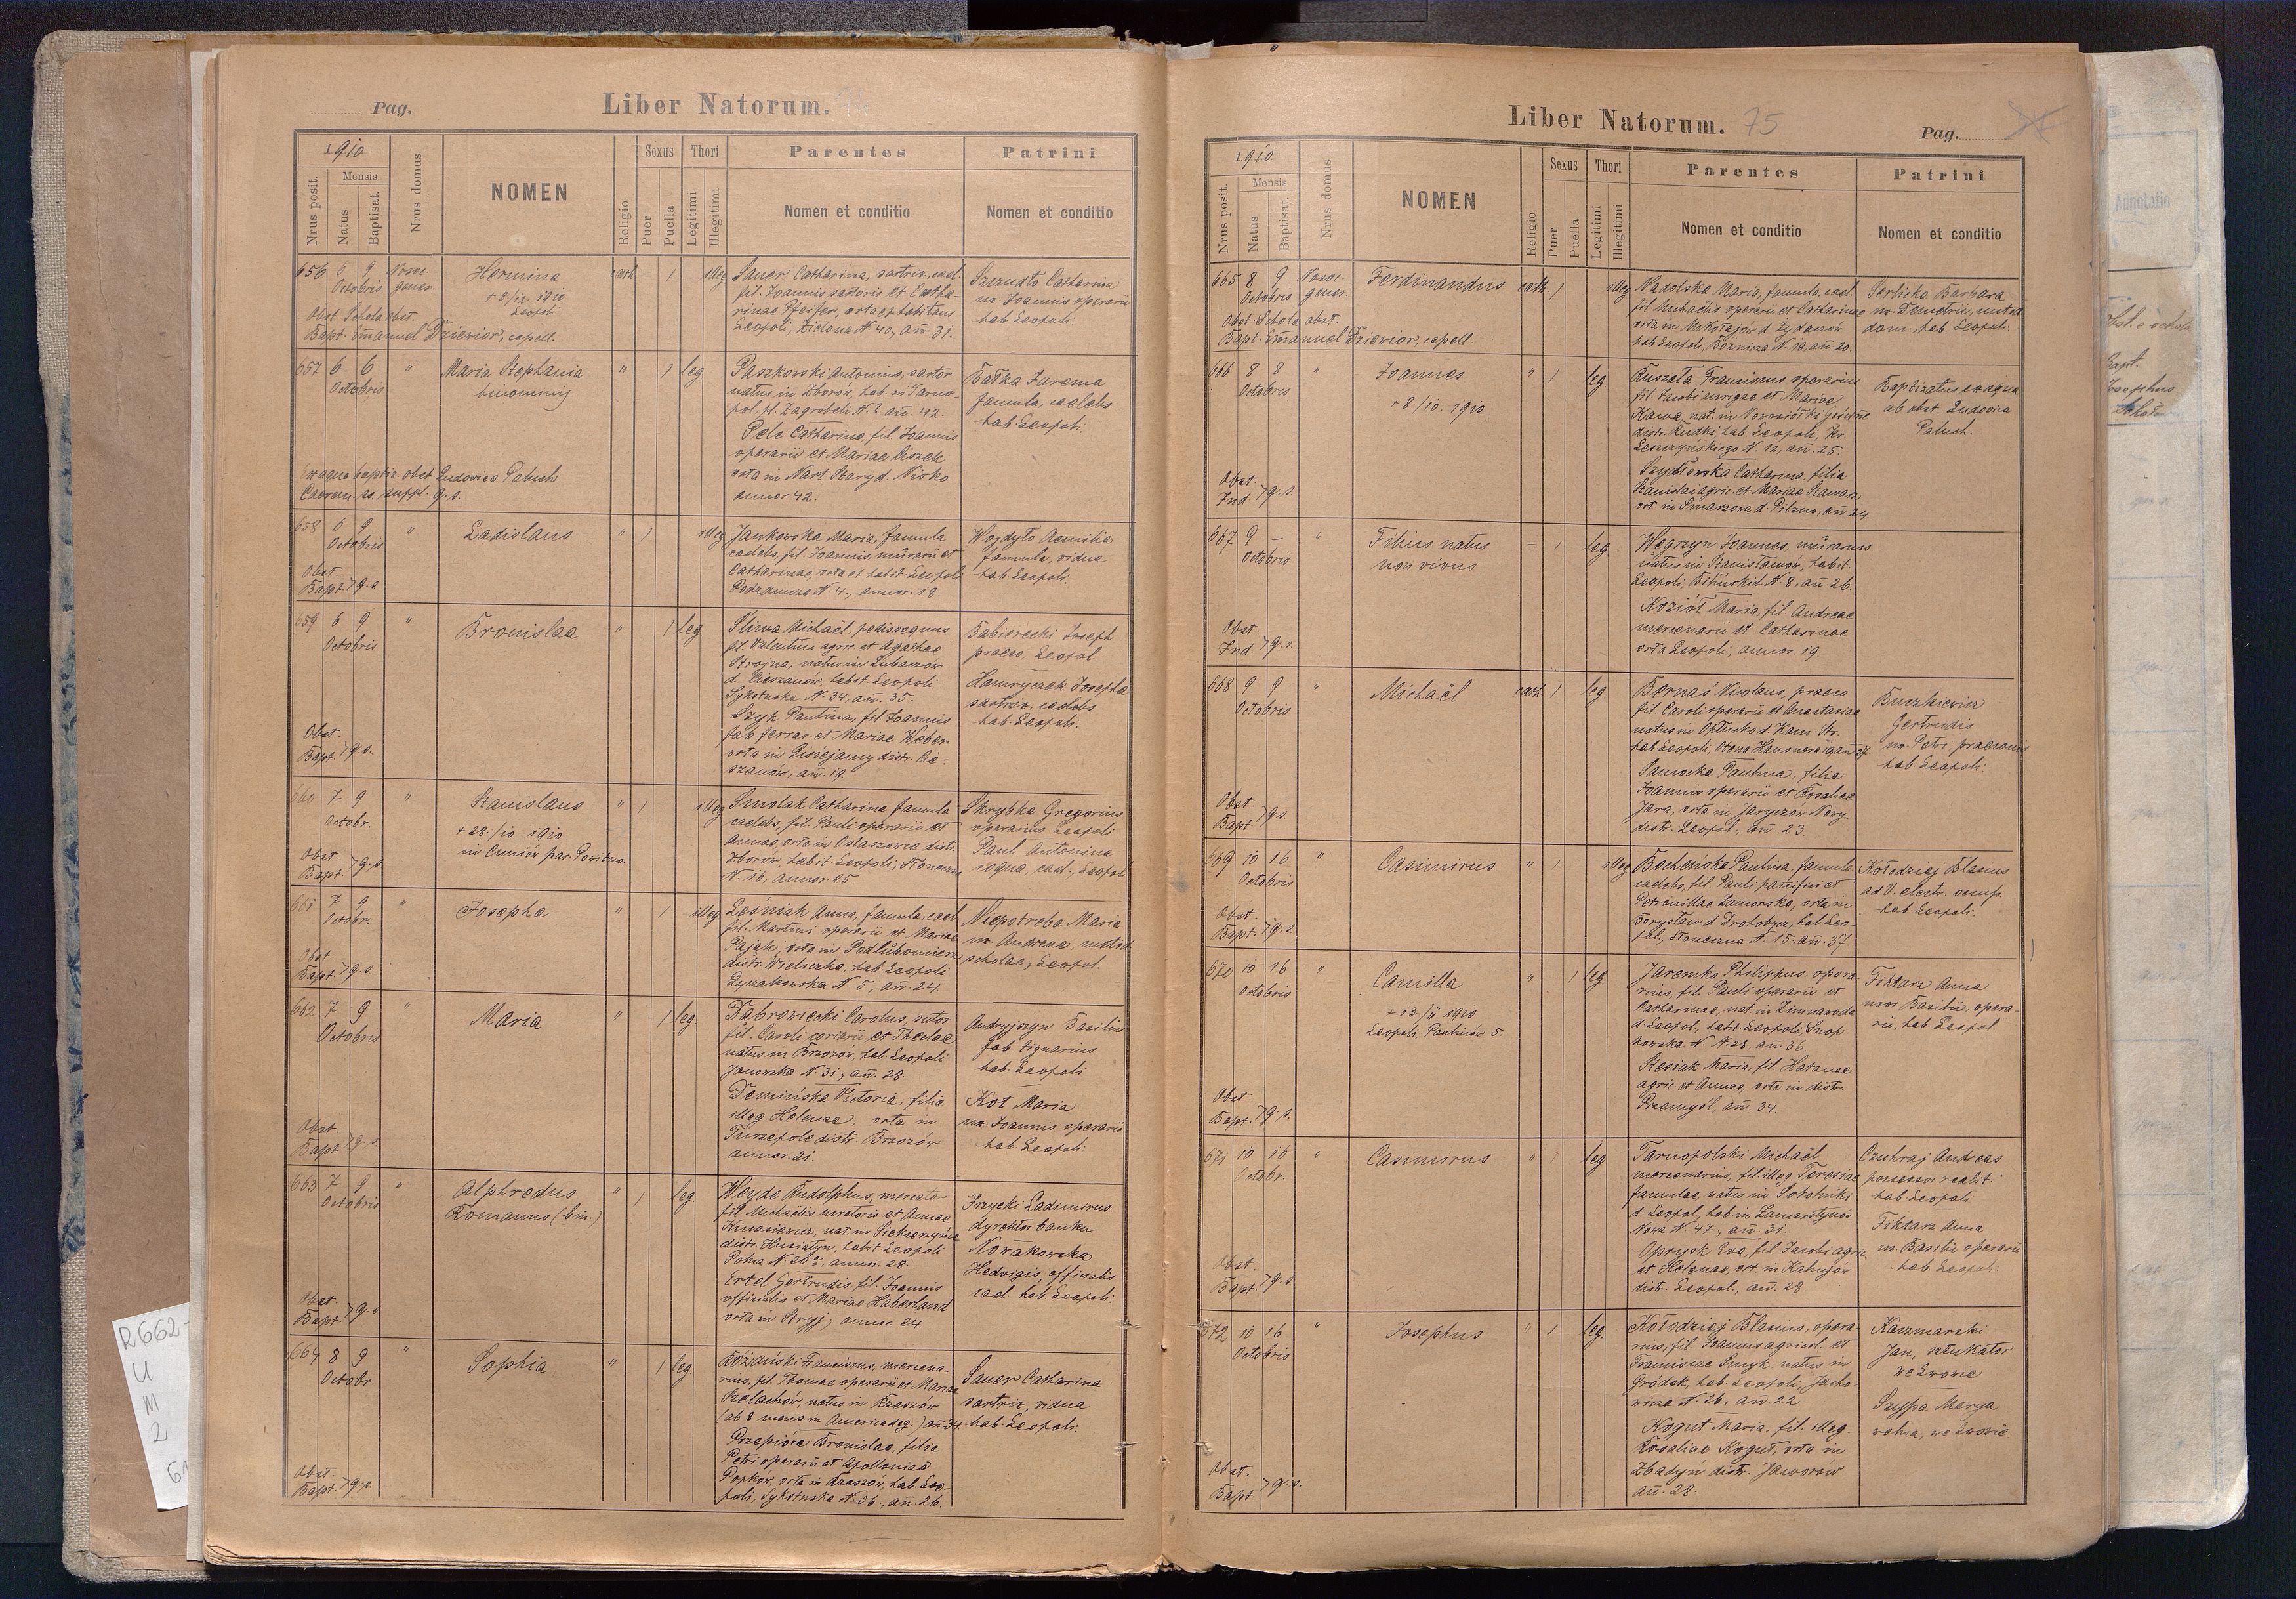 Pag.
Liber Natorum.
1910
Nrus posit.
Mensis
Natus
Baptisat.
Nrus domus
NOMEN
Religio
Sexus
Puer
Puella
Thori
Legitimi
Illegitimi
Parentes
Nomen et conditio
Patrini
Nomen et conditio
656 6 9 Octobris
Hermina
+ 8/12 1910
Leopoli
cath. 1 illeg.
Obst. Schola obst.
Bapt. Emanuel Dziewior, capell.
Sauer Catharina, sartrix, cael.
fil. Joannis sartoris et Catha-
rinae Pfeifer, orta et habitans
Leopoli, Zielona N. 40, ann. 31.
Catharina
ux. Joannis operarii
hab. Leopoli.
657 6 6 Octobris "
Maria Stephania
binominis
" 1 leg.
Ex aqua baptiz. obst. Ludovica Paluch
Caerem. ss. suppl. q. s.
Paszkowski Antonius, sartor
natus in Zborów, hab. in Tarno-
pol, pl. Zagrobeli N. 2 ann. 42.
Pelc Catharina, fil. Joannis
operarii et Mariae Ciszek
orta in Nart Stary d. Nisko
annor. 42.
Bałka Jarema
famula, caelebs
hab. Leopoli.
658 6 9 Octobris "
Ladislaus
" 1 illeg.
Obst.
Bapt. } q. s.
Jankowska Maria, famula
caelebs, fil. Joannis murarii et
Catharinae, orta et habit. Leopoli
Podzamcze N. 4., annor. 18.
Wojdyło Aemilia
famula, vidua
hab. Leopoli.
659 6 9 Octobris "
Bronislaa
" 1 leg.
Obst.
Bapt. } q. s.
Śliwa Michaël, pedissequus
fil. Valentini agric. et Agathae
Strojna, natus in Lubaczów
d. Cieszanów, habit. Leopoli
Sykstuska N. 34, ann. 35.
Szyk Paulina, fil. Joannis
fab. ferrar. et Mariae Weber
orta in Lisiejamy distr. Cie-
szanów, ann. 19.
Babierecki Joseph
praeco, Leopol.
Hawryczak Josepha
sartrix, caelebs
hab. Leopoli.
660 7 9 Octobr. "
Stanislaus
+ 28/10 1910
in Cuniów par.
" 1 illeg.
Obst.
Bapt. } q. s.
Smolak Catharina, famula
caelebs, fil. Pauli operarii et
Annae, orta in Ostaszowce distr.
Zborów, habit. Leopoli, Słoneczna
N. 16, annor. 25
Skrybka Gregorius
operarius Leopoli
Paul Antonina
coqua, cael., Leopoli
661 7 9 Octobr. "
Josepha
" 1 illeg.
Obst.
Bapt. } q. s.
Leśniak Anna, famula, cael.
fil. Martini operarii et Mariae
Pająk, orta in Podlubomierz
distr. Wieliczka, hab. Leopoli
Łyczakowska N. 5, ann. 24.
Niepotreba Maria
ux. Andreae,
scholae, Leopol.
662 7 9 Octobris "
Maria
" 1 leg.
Obst.
Bapt. } q. s.
Dąbrowiecki Carolus, sutor
fil. Caroli coriarii et Theclae
natus in Brzozów, hab. Leopoli
Janowska N. 31, ann. 28.
Demińska Victoria, filia
illeg. Helenae, orta in
Turzepole distr. Brzozów
annor. 21.
Andryjszyn Basilius
fab. lignarius
hab. Leopoli
Kot Maria
ux. Joannis operarii
hab. Leopoli
663 7 9 Octobris "
Alphredus
Romanus (bin.)
" 1 leg.
Obst.
Bapt. } q. s.
Weyde Rudolphus, mercator
fil. Michaëlis curatoris et Annae
nat. in
distr. Husiatyn, habit. Leopoli
N. 28a, annor. 28.
Ertel Gertrudis, fil. Joannis
officialis et Mariae Haberland
orta in Stryj, annor. 24.
Irzycki Ladimirus
dyrektor banku
Nowakowska
Hedvigis, officialis
cael. hab. Leopoli.
664 8 9 Octobr. "
Sophia
" 1 leg.
Obst.
Bapt. } q. s.
Różański Franciscus, mercena-
rius, fil. Thomae operarii et Mariae
Szelachów, natus in Rzeszów
(ab 8 mens. in America deg.) ann. 34
Przepióra Bronislaa, filia
Petri operarii et Apolloniae
Popków, orta in Rzeszów, hab. Leo-
poli, Sykstuska N. 56, ann. 26.
Sauer Catharina
sartrix, vidua
hab. Leopoli.
Liber Natorum. 75
Pag.
1910
Nrus posit.
Mensis
Natus
Baptisat.
Nrus domus
NOMEN
Religio
Sexus
Puer
Puella
Thori
Legitimi
Illegitimi
Parentes
Nomen et conditio
Patrini
Nomen et conditio
665 8 9 Octobris
Ferdinandus
cath. 1 illeg.
Obst. Schola obst.
Bapt. Emanuel Dziewior, capell.
Nadolska Maria, famula, cael.
fil. Michaëlis operarii et Catharinae
orta in Mikołajów d. Żydaczów
hab. Leopoli, Bóżnicza N. 19, ann. 20.
Serlicka Barbara
ux. Demetrii, custod.
dom. hab. Leopoli.
666 8 8 Octobris "
Joannes
+ 8/10. 1910
" 1 leg.
Obst.
Ind. } q. s.
Ruszała Franciscus operarius
fil. Jacobi aurigae et Mariae
Kawa, nat. in
distr. Rudki, hab. Leopoli, Kr.
Leszczyńskiego N. 12, ann. 25.
Szydłowska Catharina, filia
Stanislai agric. et Mariae
ort. in Smarzowa d. Pilzno, ann. 24.
Baptizatus ex aqua
ab obst. Ludovica
Paluch.
667 9 – Octobris "
Filius natus
non vivus
– 1 leg.
Obst.
Ind. } q. s.
Węgrzyn Joannes, murarius
natus in Stanisławów, habit.
Leopoli, Bilińskich N. 8, ann. 26.
Kozioł Maria, fil. Andreae
mercenarii et Catharinae
orta Leopoli, annor. 19.
668 9 9 Octobris "
Michaël
cath. 1 leg.
Obst.
Bapt. } q. s.
Bernaś Nicolaus, praeco
fil. Caroli operarii et Anastasiae
natus in d. Kam. Str.
hab. Leopoli, Otona Hausnera 9 ann. 27.
Samocka Paulina, filia
Joannis operarii et Rosaliae
Jara, orta in Jaryczów Nowy
distr. Leopol., ann. 23
Buczkiewicz
Gertrudis
ux. Petri praeconis
hab. Leopoli.
669 10 16 Octobris "
Casimirus
" 1 illeg.
Obst.
Bapt. } q. s.
Bocheńska Paulina, famula
caelebs, fil. Pauli panificis et
Petronillae Zamorska, orta in
Borysław d. Drohobycz, hab. Leo-
poli, Słoneczna N. 15, ann. 37.
Kołodziej Blasius
ad V. electr.
hab. Leopoli.
670 10 16 Octobris "
Camilla
+ 13/11 1910
Leopoli, Paulinów 5.
" 1 leg.
Obst.
Bapt. } q. s.
Jaremko Philippus, opera-
rius, fil. Pauli operarii et
Catharinae, nat. in Zimnawoda
d. Leopol., habit. Leopoli, Snop-
kowska N. 28, ann. 36.
Stesiak Maria, fil.
agric. et Annae, orta in distr.
Przemyśl, ann. 34.
Fiktarz Anna
uxor Basilii, opera-
rii, hab. Leopol.
671 10 16 Octobr. "
Casimirus
" 1 leg.
Obst.
Bapt. } q. s.
Tarnopolski Michaël
mercenarius, fil. illeg. Teresiae
famulae, natus in Sokolniki
d. Leopol, hab. in Zamarstynów
Nowa N. 47, ann. 31.
Oprysk Eva, fil. Jacobi agric.
et Helenae, ort. in Kahujów
distr. Leopol., ann. 28.
Czuhraj Andreas
possessor realit.
hab. Leopoli
Fiktarz Anna
ux. Basilii operarii
hab. Leopoli.
672 10 16 Octobris "
Josephus
" 1 leg.
Obst.
Bapt. } q. s.
Kołodziej Blasius, opera-
rius, fil. Joannis agricol. et
Franciscae Smyk, natus in
Gródek, hab. Leopoli,
N. 26, ann. 22
Kogut Maria, fil. illeg.
Rosaliae Kogut, orta in
Zbadyń distr. Jaworów
ann. 28.
Kaczmarski
Jan, sztukator
we Lwowie
Szyppa Marya
wolna, we Lwowie
Annotatio
Bapt.
Josephus
R662-
U
M
2